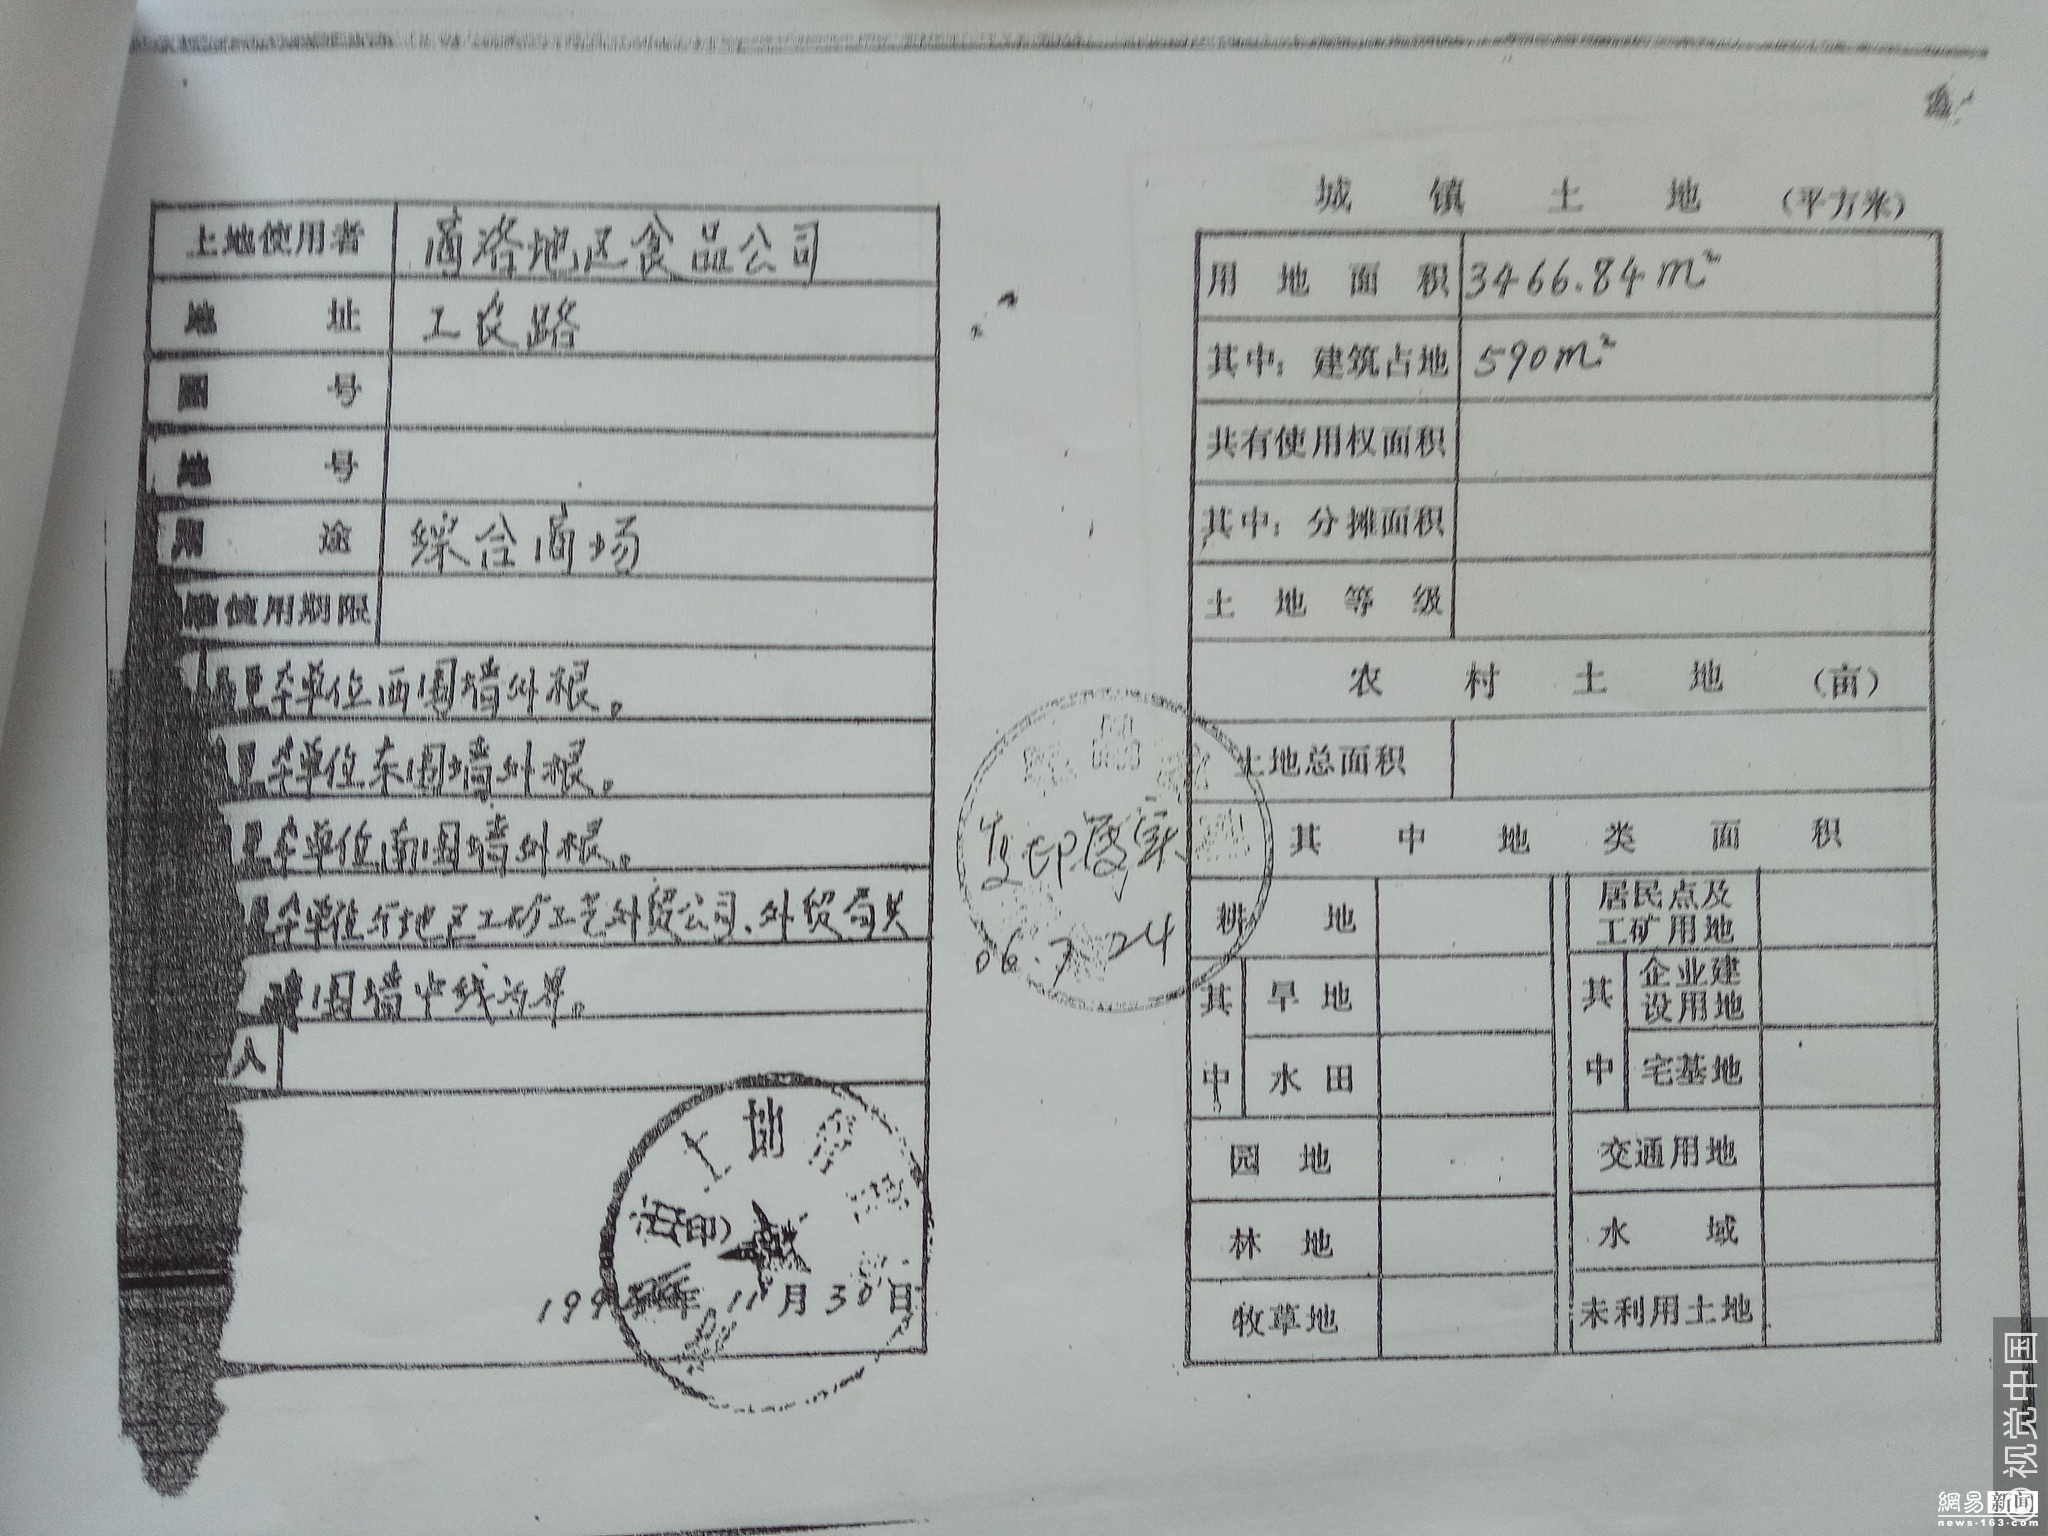 土地使用者 商洛地区食品公司
地 址 工农路
图 号
地 号
用 途 综合商场
使用期限
本单位西围墙外根。
本单位东围墙外根。
本单位南围墙外根。
本单位与地区工矿工艺外贸公司、外贸局共
围墙中线为界。
人
土地
(印)
199 年 11月30日
复印属实
06.7.24
城 镇 土 地 (平方米)
用 地 面 积 3466.84m²
其中：建筑占地 590m²
共有使用权面积
其中：分摊面积
土 地 等 级
农 村 土 地 (亩)
土地总面积
其 中 地 类 面 积
耕 地
居民点及
工矿用地
其中 旱 地
其中 企业建
设用地
水 田
宅基地
园 地
交通用地
林 地
水 域
牧草地
未利用土地
视觉中国
網易 新闻
news-163.com